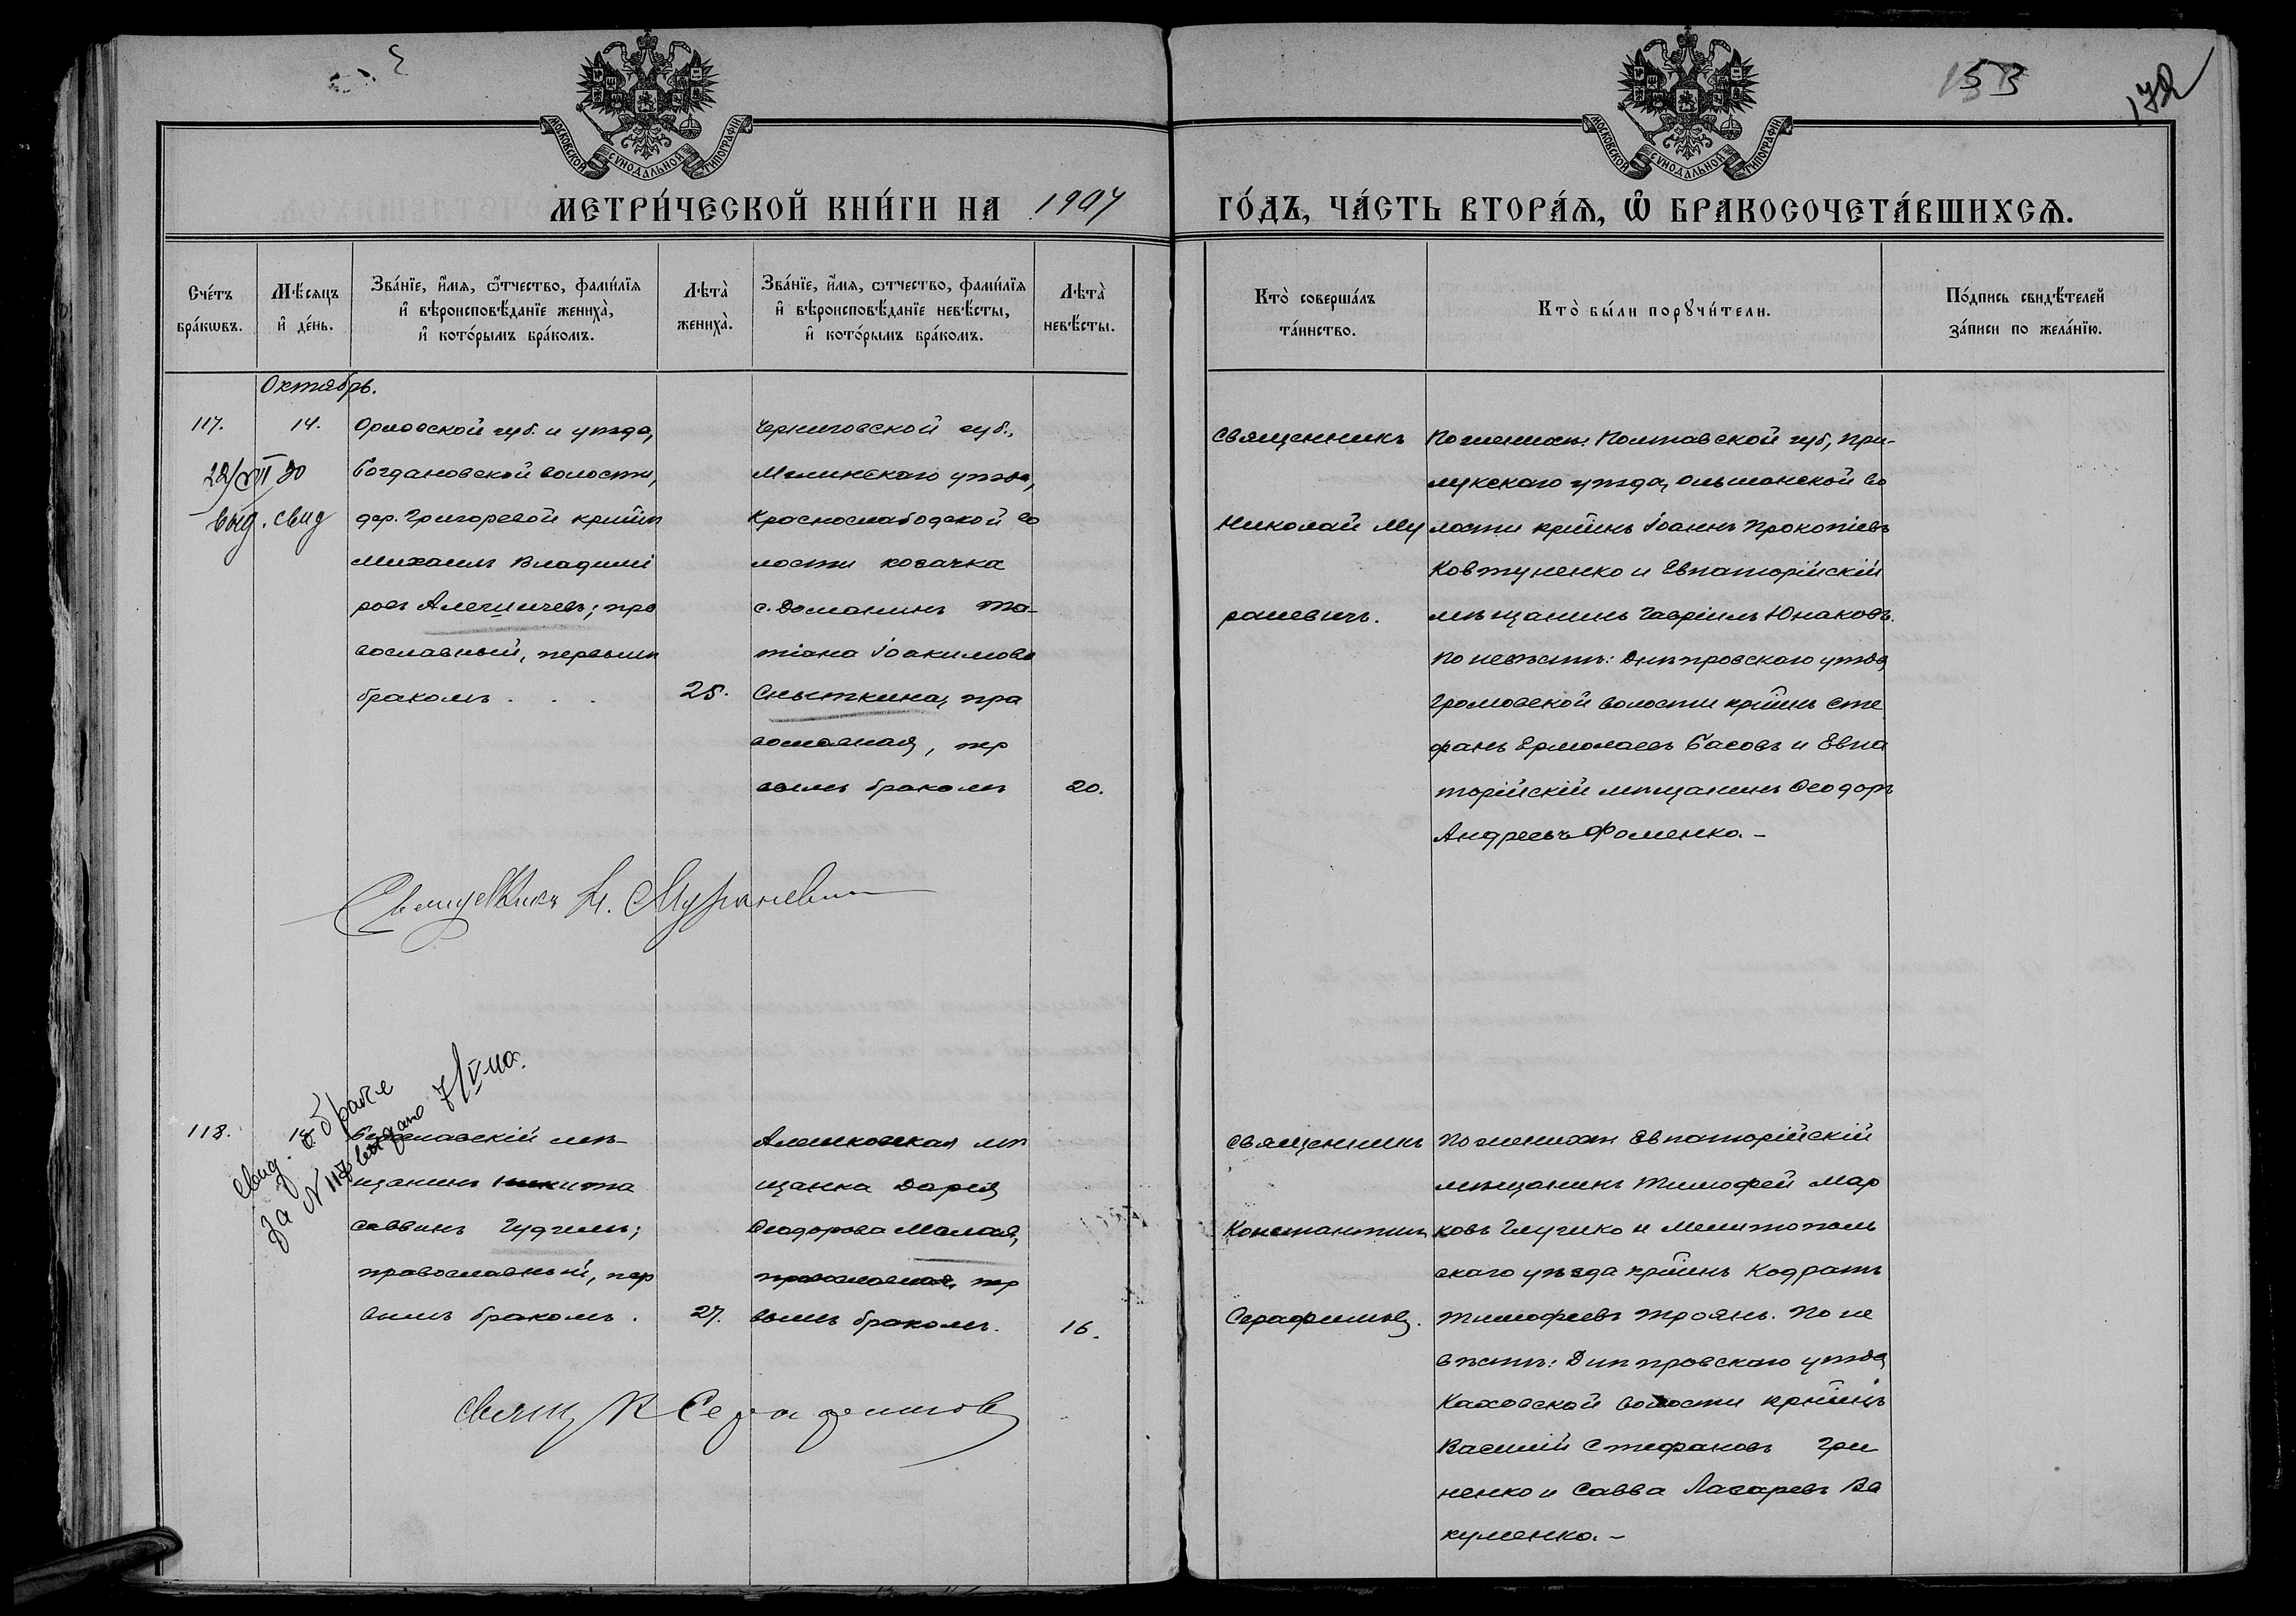 153
172
МОСКОВСКОЙ СѴНОДАЛЬНОЙ ТИПОГРАФІИ
МОСКОВСКОЙ СѴНОДАЛЬНОЙ ТИПОГРАФІИ
МЕТРИ́ЧЕСКОЙ КНИ́ГИ НА 1907
ГО́ДЪ, ЧА́СТЬ ВТОРА́Я, Ѽ БРАКОСОЧЕТА́ВШИХСЯ.
Сче́тъ бра́кѡвъ.
Мѣ́сяцъ и҆ де́нь.
Зва́нїе, и҆́мя, ѻ҆́тчество, фами́лїя
и҆ вѣроисповѣ́данїе жениха̀,
и҆ кото́рымъ бра́комъ.
Лѣта̀ жениха̀.
Зва́нїе, и҆́мя, ѻтчество, фами́лїя
и҆ вѣроисповѣ́данїе невѣ́сты,
и҆ кото́рымъ бра́комъ.
Лѣта̀ невѣ́сты.
Кто̀ соверша́лъ та́инство.
Кто̀ бы́ли порꙋчи́тели.
По́дпись свидѣ́телей
за́писи по жела́нїю.
Октябрь.
117.
14.
22/XII 20
выд. свид
Орловской губ. и уѣзда,
Богдановской волости,
дер. Григоревой крѣйн
Михаилъ Владимі
ровъ Алегичевъ; пра
вославный, первымъ
бракомъ . . .
25.
Черниговской губ.,
Мглинскаго уѣзда,
Краснослабодской во
лости козачка
с. Доманичъ Та-
тіана Іоакимова
Сныткина, пра
вославная, пер
вымъ бракомъ
20.
Священникъ
Николай Му
раневичъ.
По женихѣ: Полтавской губ, При-
лукскаго уѣзда, Ольшанской во
лости крѣйнъ Іоаннъ Прокопіевъ
Ковтуненко и Евпаторійскій
мѣщанинъ Гавріилъ Юнаковъ.
По невѣстѣ: Днѣпровскаго уѣзда,
Громовской волости крѣйнъ Сте
фанъ Ермолаевъ Басовъ и Евпа
торійскій мѣщанинъ Ѳеодоръ
Андреевъ Фоменко. –
Священникъ Н. Мураневич
118.
14.
свид. о браке
за № 118 выдано 7/V 40.
мѣ-
щанинъ Никита
Саввинъ Гудзимъ;
православный, пер
вымъ бракомъ .
27.
Алешковская мѣ
щанка Дарія
Ѳеодорова Малая,
православная, пер
вымъ бракомъ.
16.
Священникъ
Константинъ
Серафимовъ.
По женихѣ Евпаторійскій
мѣщанинъ Тимофей Мар
ковъ Глушко и Мелитополь
скаго уѣзда крѣйнъ Кодратъ
Тимофеевъ Троянъ. По не
вѣстѣ: Днѣпровскаго уѣзда,
Каховской волости крѣйнъ
Василій Стефановъ Гри
ненко и Савва Лазаревъ Ва
куленко. –
Свящ К Серафимовъ